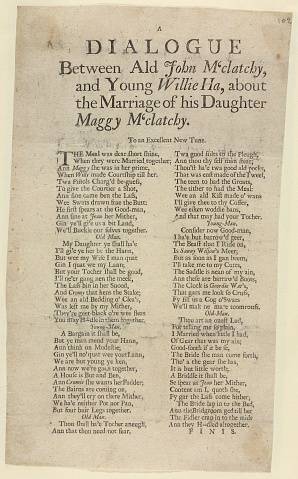 A
DIALOGUE
Between Ald John Mcclatchy,
and Young Willie Ha, about
the Marriage of his Daughter
Maggy Mcclatchy.
To an Excellent New Tune.
THE Meal was dear short syne,
When they were Married together;
And Maggy she was in her prime,
When Willy made Courtship till her.
Twa Pistols Charg'd be-guess,
To give the Courter a Shot,
And syne came ben the Lass,
Wee Swats drawn frae the Butt:
He first speirs at the Good-man,
And syne at Jean her Mither,
Gin ye'll gi'e us a bit Land,
We'll Buckle our selves together.
Old-Man.
My Daughter ye shall ha'e
I'll gi'e ye her be the Hand,
But wee my Wife I man quat
Gin I quat we my Land;
But your Tocher shall be good,
I'll the Lass bin in her Snood,
And Crummy that kens the Stake;
Wee an ald Bedding of Clea's,
Was left me by my Mither,
You may in them together.
Young-Man.
A Bargain it shall be,
But ye man mend your Hand,
Aun think on Modestie;
Gin ye'll no quat wee your Land,
We are but young ye ken,
Ann now we're gawn together,
A House is But and Ben,
Ann Crummie she wants her Fodder;
The Bairns are coming on,
Ann they'll cry on there Mither,
We ha'e neither Pot nor Pan,
But four bair Legs together.
Old Man.
Thou shall ha'e Tocher eneugh,
Ann that thou need not fear,
Twa good stilts to the Pleugh,
Ann thou thy self men steer;
Thou'st ha'e twa good ald pocks,
That was ens made of the Tweel,
The teen to had the Groats,
The tither to had the Meal:
Wee an ald Kist made o' wans
I'll give thee to thy Coffer,
Wee eiken woddie bans,
And that may had your Tocher.
Young-Man.
Consider now Good-man,
I ha'e but barrow'd gear,
The Beast that I Ride on
Is Sawny Wilson's Meer;
But as soon as I gan hence,
I'll take me to my Carts,
The Saddle is nean of my ain,
Ann these are barrow'd Boots;
The Cloak is Geordie War's,
That gars me look so Crouse,
Fy fill us a Cog o'Swats
We'll mak' no mare toomrouse.
Old-Man.
Thou art an onest Lad,
For telling me so plain,
I Married when little I had,
Of Gear that was my ain;
Good-feeth if it be so,
The Bride she man come forth,
Tho' a the gear she has,
It is but little worth,
A Briddle it shall be,
Se speer at Jean her Mither,
Content am I, quoth she,
Fy gar the Lass come hither;
The Bride lap in to the Bed,
Ann the Bridgroom ged till her
The Fidler crap in to the mids
And they H—dled altogether.
FINIS.